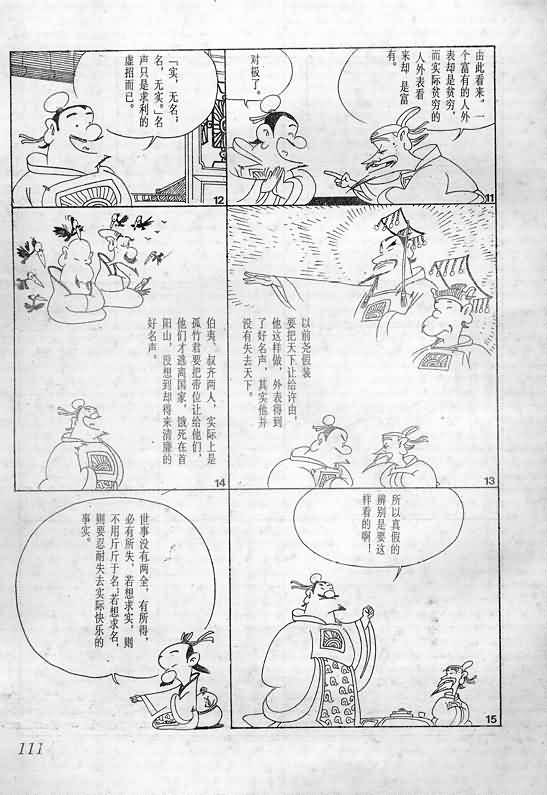 由此看来，一
个富有的人外
表却是贫穷，
而实际贫穷的
人外表看
来却 是富
有。
对极了。
11
「实，无名；
名，无实。」名
声只是求利的
虚招而已。
12
以前尧假装
要把天下让给许由，
他这样做，外表得到
了好名声，其实他并
没有失去天下。
13
伯夷、叔齐两人，实际上是
孤竹君要把帝位让给他们，
他们才逃离国家，饿死在首
阳山，没想到却得来清廉的
好名声。
14
所以真假的
辨别是要这
样看的啊！
15
世事没有两全，有所得，
必有所失，若想求实，则
不用斤斤于名；若想求名，
则要忍耐失去实际快乐的
事实。
111